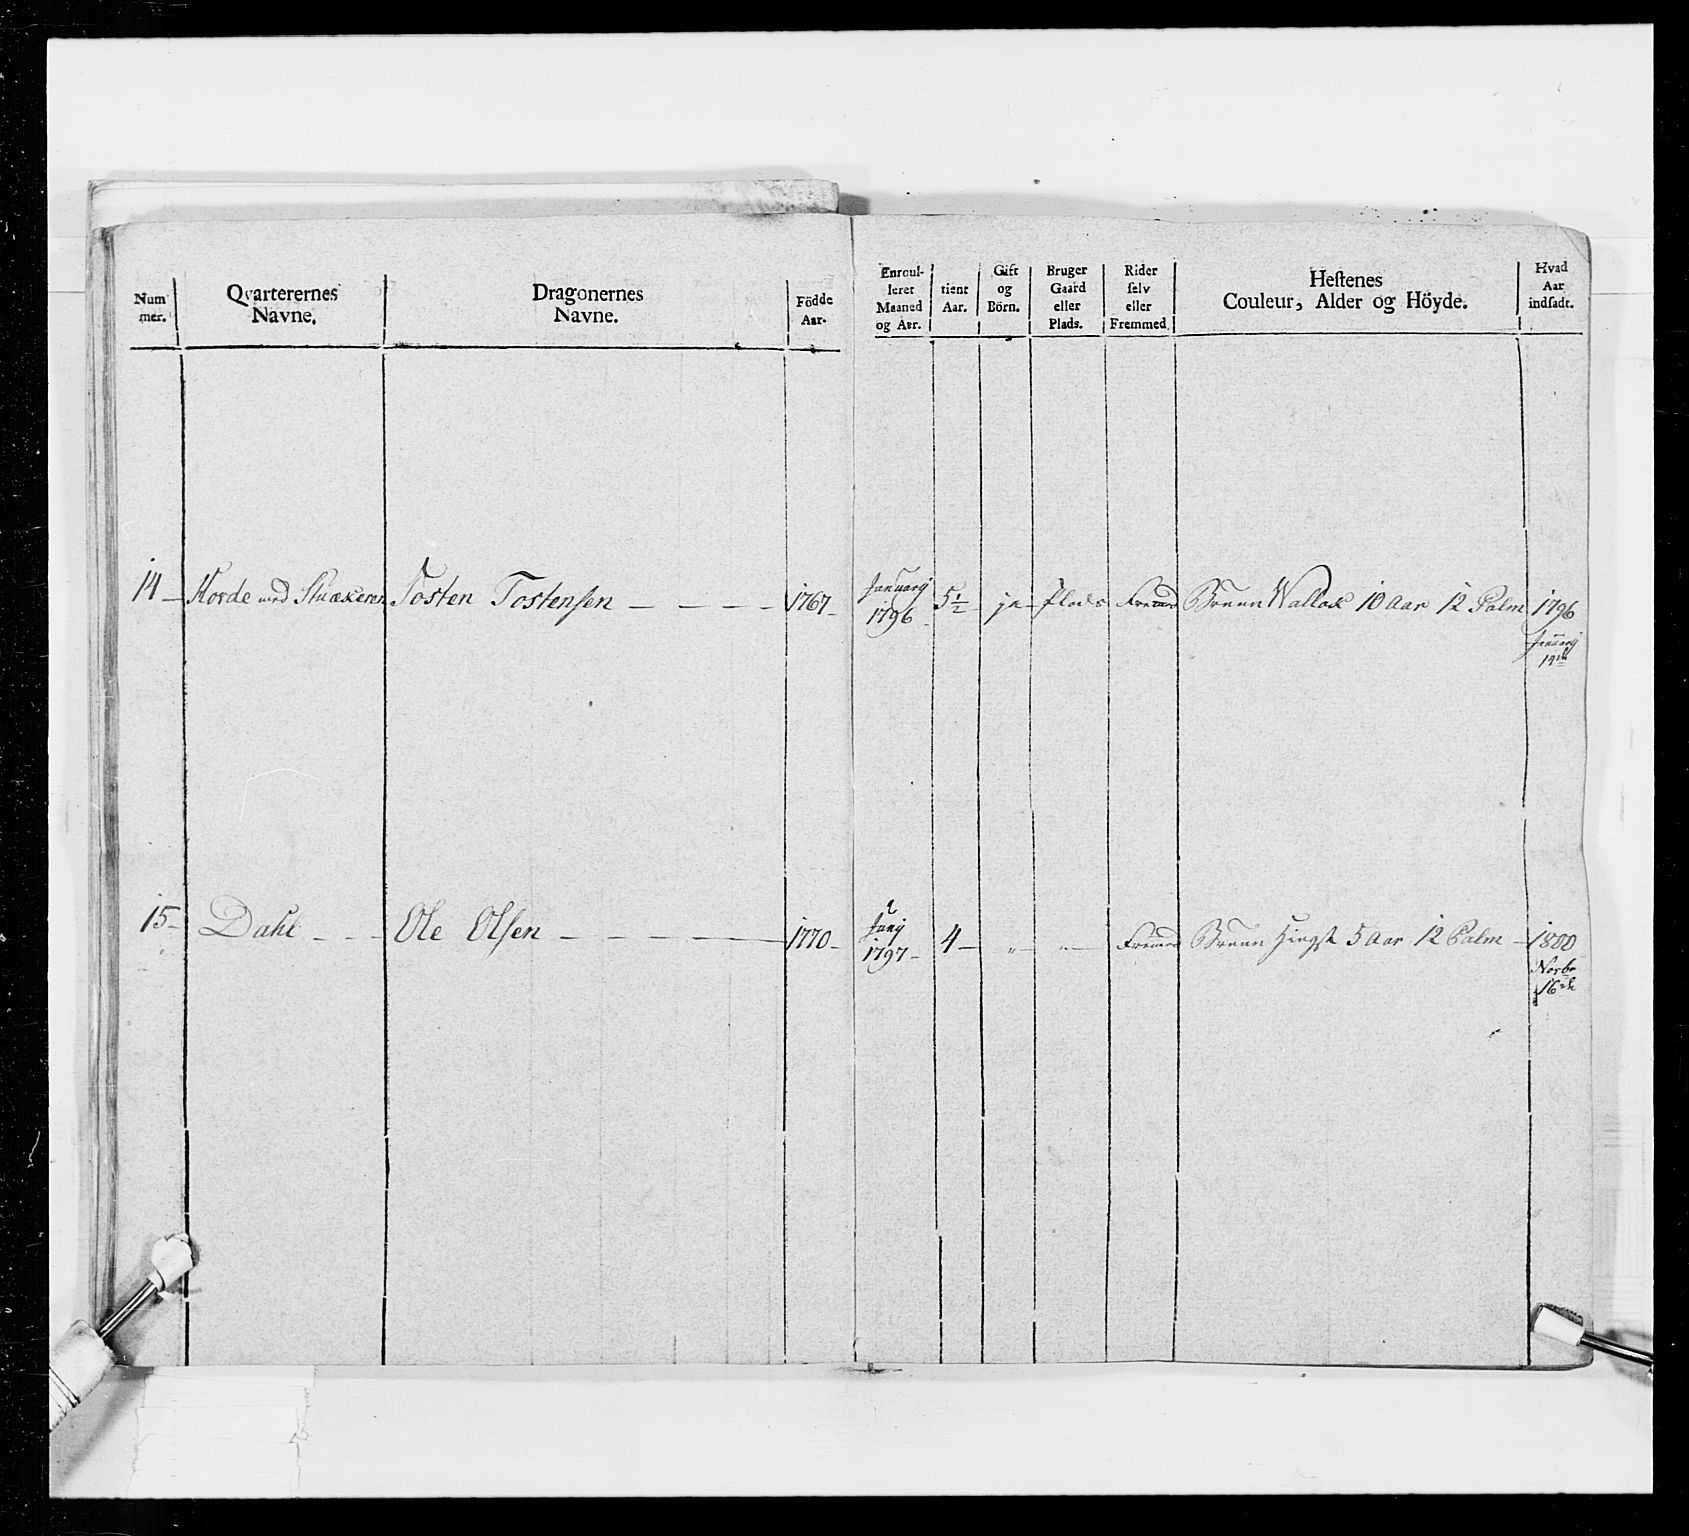 Num mer. Qvarterernes Navne. Dragonernes Navne. Födde Aar. Enroulleret Maaned og Aar. tient Aar. Gift og Börn. Bruger Gaard eller Plads. Rider selv eller Fremmed. Hestenes Couleur, Alder og Höyde. Hvad Aar indsadt.
14 Horde med Tosten Tostensen 1767 Januarij 1796 5½ ja Plads Fremed Bruun Wallak 10 Aar 12 Palm 1796
Januarij
15 Dahl Ole Olsen 1770 Junij 1797 4 " " Fremed Bruun Hingst 5 Aar 12 Palm 1800
Novbr
16de